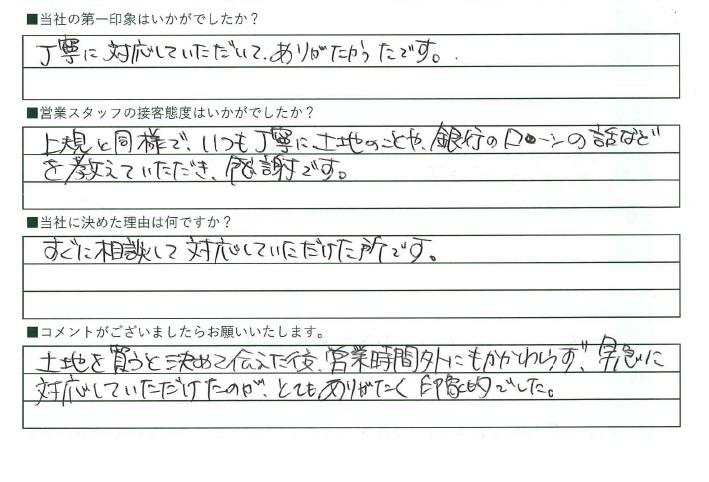 ■当社の第一印象はいかがでしたか？
丁寧に対応していただいて、ありがたかったです。
■営業スタッフの接客態度はいかがでしたか？
上規と同様で、いつも丁寧に土地のことや、銀行のローンの話など
を教えていただき、感謝です。
■当社に決めた理由は何ですか？
すぐに相談して対応していただけた所です。
■コメントがございましたらお願いいたします。
土地を買うと決めて伝えた後、営業時間外にもかかわらず、早急に
対応していただけたのが、とてもありがたく印象的でした。